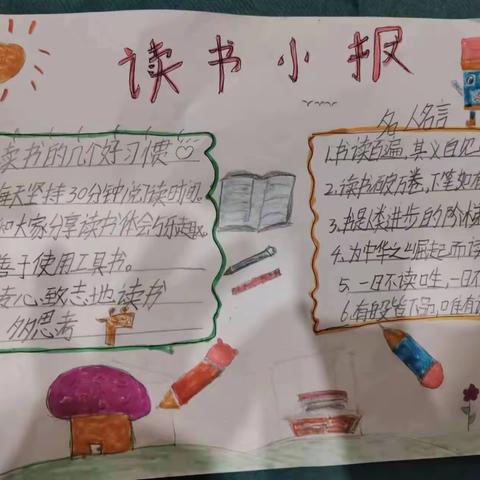 读书小报
读书的几个好习惯
每天坚持30分钟阅读时间。
和大家分享读书体会与乐趣。
善于使用工具书。
专心致志地读书
多思考
名人名言
1.书读百遍,其义自见
2.读书破万卷,下笔如有
3.书是人类进步的阶梯
4.为中华之崛起而读
5、一日不读口生,一日不
6.般皆下品,唯有